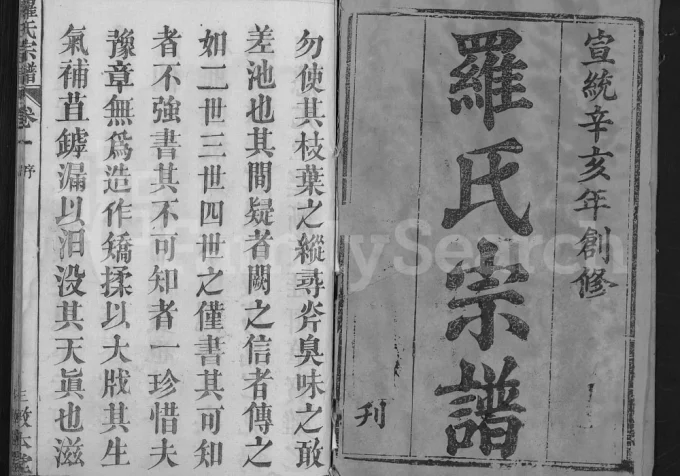 宣統辛亥年創修
羅氏宗譜
刊
勿使其枝葉之縱尋斧臭味之敢
差池也其間疑者闕之信者傳之
如二世三世四世之僅書其可知
者不強書其不可知者一珍惜夫
豫章無爲造作矯揉以大戕其生
氣補苴罅漏以汩没其天眞也滋
羅氏宗譜
卷一
序
FamilySearch